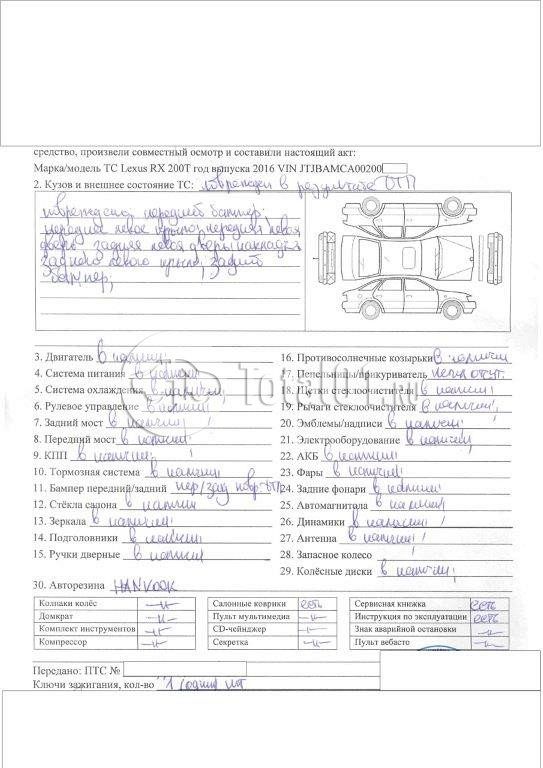 средство, произвели совместный осмотр и составили настоящий акт:
Марка/модель ТС Lexus RX 200T год выпуска 2016 VIN JTJBAMCA00200
2. Кузов и внешнее состояние ТС: поврежден в результате ДТП
повреждено передний бампер;
переднее левое крыло; передняя левая
дверь задняя левая дверь; накладка
заднего левого крыла; задний
бампер;
3. Двигатель в наличии; 16. Противосолнечные козырьки в наличии
4. Система питания в наличии 17. Пепельницы/прикуриватель
5. Система охлаждения в наличии; 18. Щетки стеклоочистителя в наличии;
6. Рулевое управление в наличии 19. Рычаги стеклоочистителя в наличии;
7. Задний мост в наличии; 20. Эмблемы/надписи в наличии;
8. Передний мост в наличии 21. Электрооборудование в наличии;
9. КПП в наличии; 22. АКБ в наличии
10. Тормозная система в наличии 23. Фары в наличии;
11. Бампер передний/задний пер/зад повр. ДТП 24. Задние фонари в наличии
12. Стёкла салона в наличии; 25. Автомагнитола в наличии
13. Зеркала в наличии; 26. Динамики в наличии;
14. Подголовники в наличии 27. Антенна в наличии;
15. Ручки дверные в наличии 28. Запасное колесо
29. Колёсные диски в наличии;
30. Авторезина HANKOOK
Колпаки колёс –"– Салонные коврики есть Сервисная книжка есть
Домкрат –"– Пульт мультимедиа –"– Инструкция по эксплуатации есть
Комплект инструментов –"– CD-чейнджер –"– Знак аварийной остановки –"–
Компрессор –"– Секретка –"– Пульт вебасто –"–
Передано: ПТС №
Ключи зажигания, кол-во "1 (один) шт